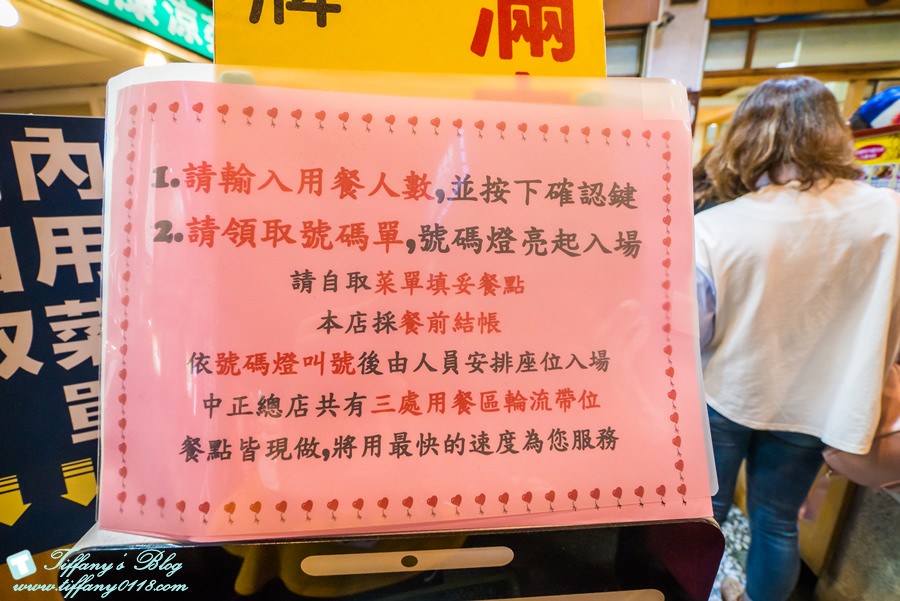 1.請輸入用餐人數,並按下確認鍵
2.請領取號碼單,號碼燈亮起入場
請自取菜單填妥餐點
本店採餐前結帳
依號碼燈叫號後由人員安排座位入場
中正總店共有三處用餐區輪流帶位
餐點皆現做,將用最快的速度為您服務
內用菜單
Tiffany's Blog
www.tiffany0118.com